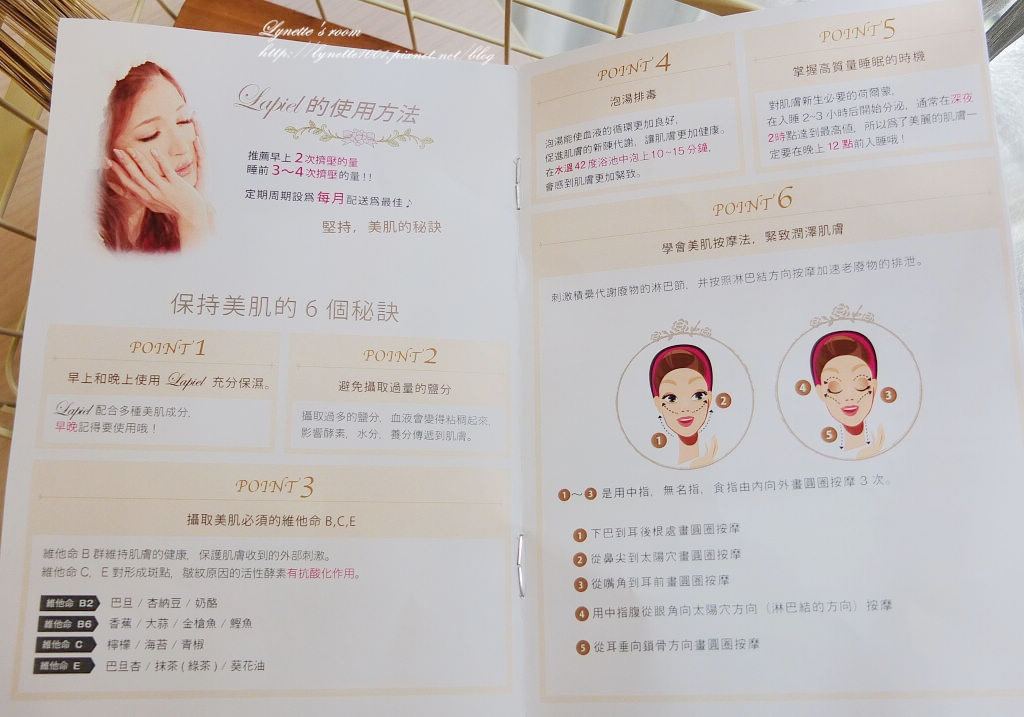 Lynette's room
http://lynette1001.pixnet.net/blog
Lapiel 的使用方法
推薦早上 2次擠壓的量
睡前 3～4次擠壓的量!!
定期周期設爲 每月配送爲最佳♪
堅持，美肌的秘訣
保持美肌的 6 個秘訣
POINT 1
早上和晚上使用 Lapiel 充分保濕。
Lapiel 配合多種美肌成分，
早晚記得要使用哦！
POINT 2
避免攝取過量的鹽分
攝取過多的鹽分，血液會變得粘稠起來，
影響酵素，水分，養分傳遞到肌膚。
POINT 3
攝取美肌必須的維他命 B,C,E
維他命 B 群維持肌膚的健康，保護肌膚收到的外部刺激。
維他命 C，E 對形成斑點，皺紋原因的活性酵素有抗酸化作用。
維他命 B2 巴旦 / 杏納豆 / 奶酪
維他命 B6 香蕉 / 大蒜 / 金槍魚 / 鰹魚
維他命 C 檸檬 / 海苔 / 青椒
維他命 E 巴旦杏 / 抹茶 ( 綠茶 ) / 葵花油
POINT 4
泡湯排毒
泡湯能使血液的循環更加良好，
促進肌膚的新陳代謝，讓肌膚更加健康。
在水溫 42 度浴池中泡上 10~15 分鐘，
會感到肌膚更加緊致。
POINT 5
掌握高質量睡眠的時機
對肌膚新生必要的荷爾蒙，
在入睡 2~3 小時后開始分泌，通常在深夜
2時點達到最高值，所以爲了美麗的肌膚一
定要在晚上 12 點前入睡哦！
POINT 6
學會美肌按摩法，緊致潤澤肌膚
刺激積纍代謝廢物的淋巴節，并按照淋巴結方向按摩加速老廢物的排泄。
1 2
4 3 5
1～3 是用中指，無名指，食指由內向外畫圓圈按摩 3 次。
1 下巴到耳後根處畫圓圈按摩
2 從鼻尖到太陽穴畫圓圈按摩
3 從嘴角到耳前畫圓圈按摩
4 用中指腹從眼角向太陽穴方向（淋巴結的方向）按摩
5 從耳垂向鎖骨方向畫圓圈按摩